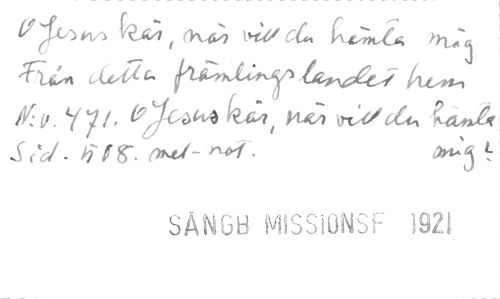 O Jesus kär, når vill du hämta mig
Från detta främlingslandet hem
N:o. 471. O Jesus kär, når vill du hämta
Sid. 508. mel-not. mig?
SÅNGB MISSIONSF 1921